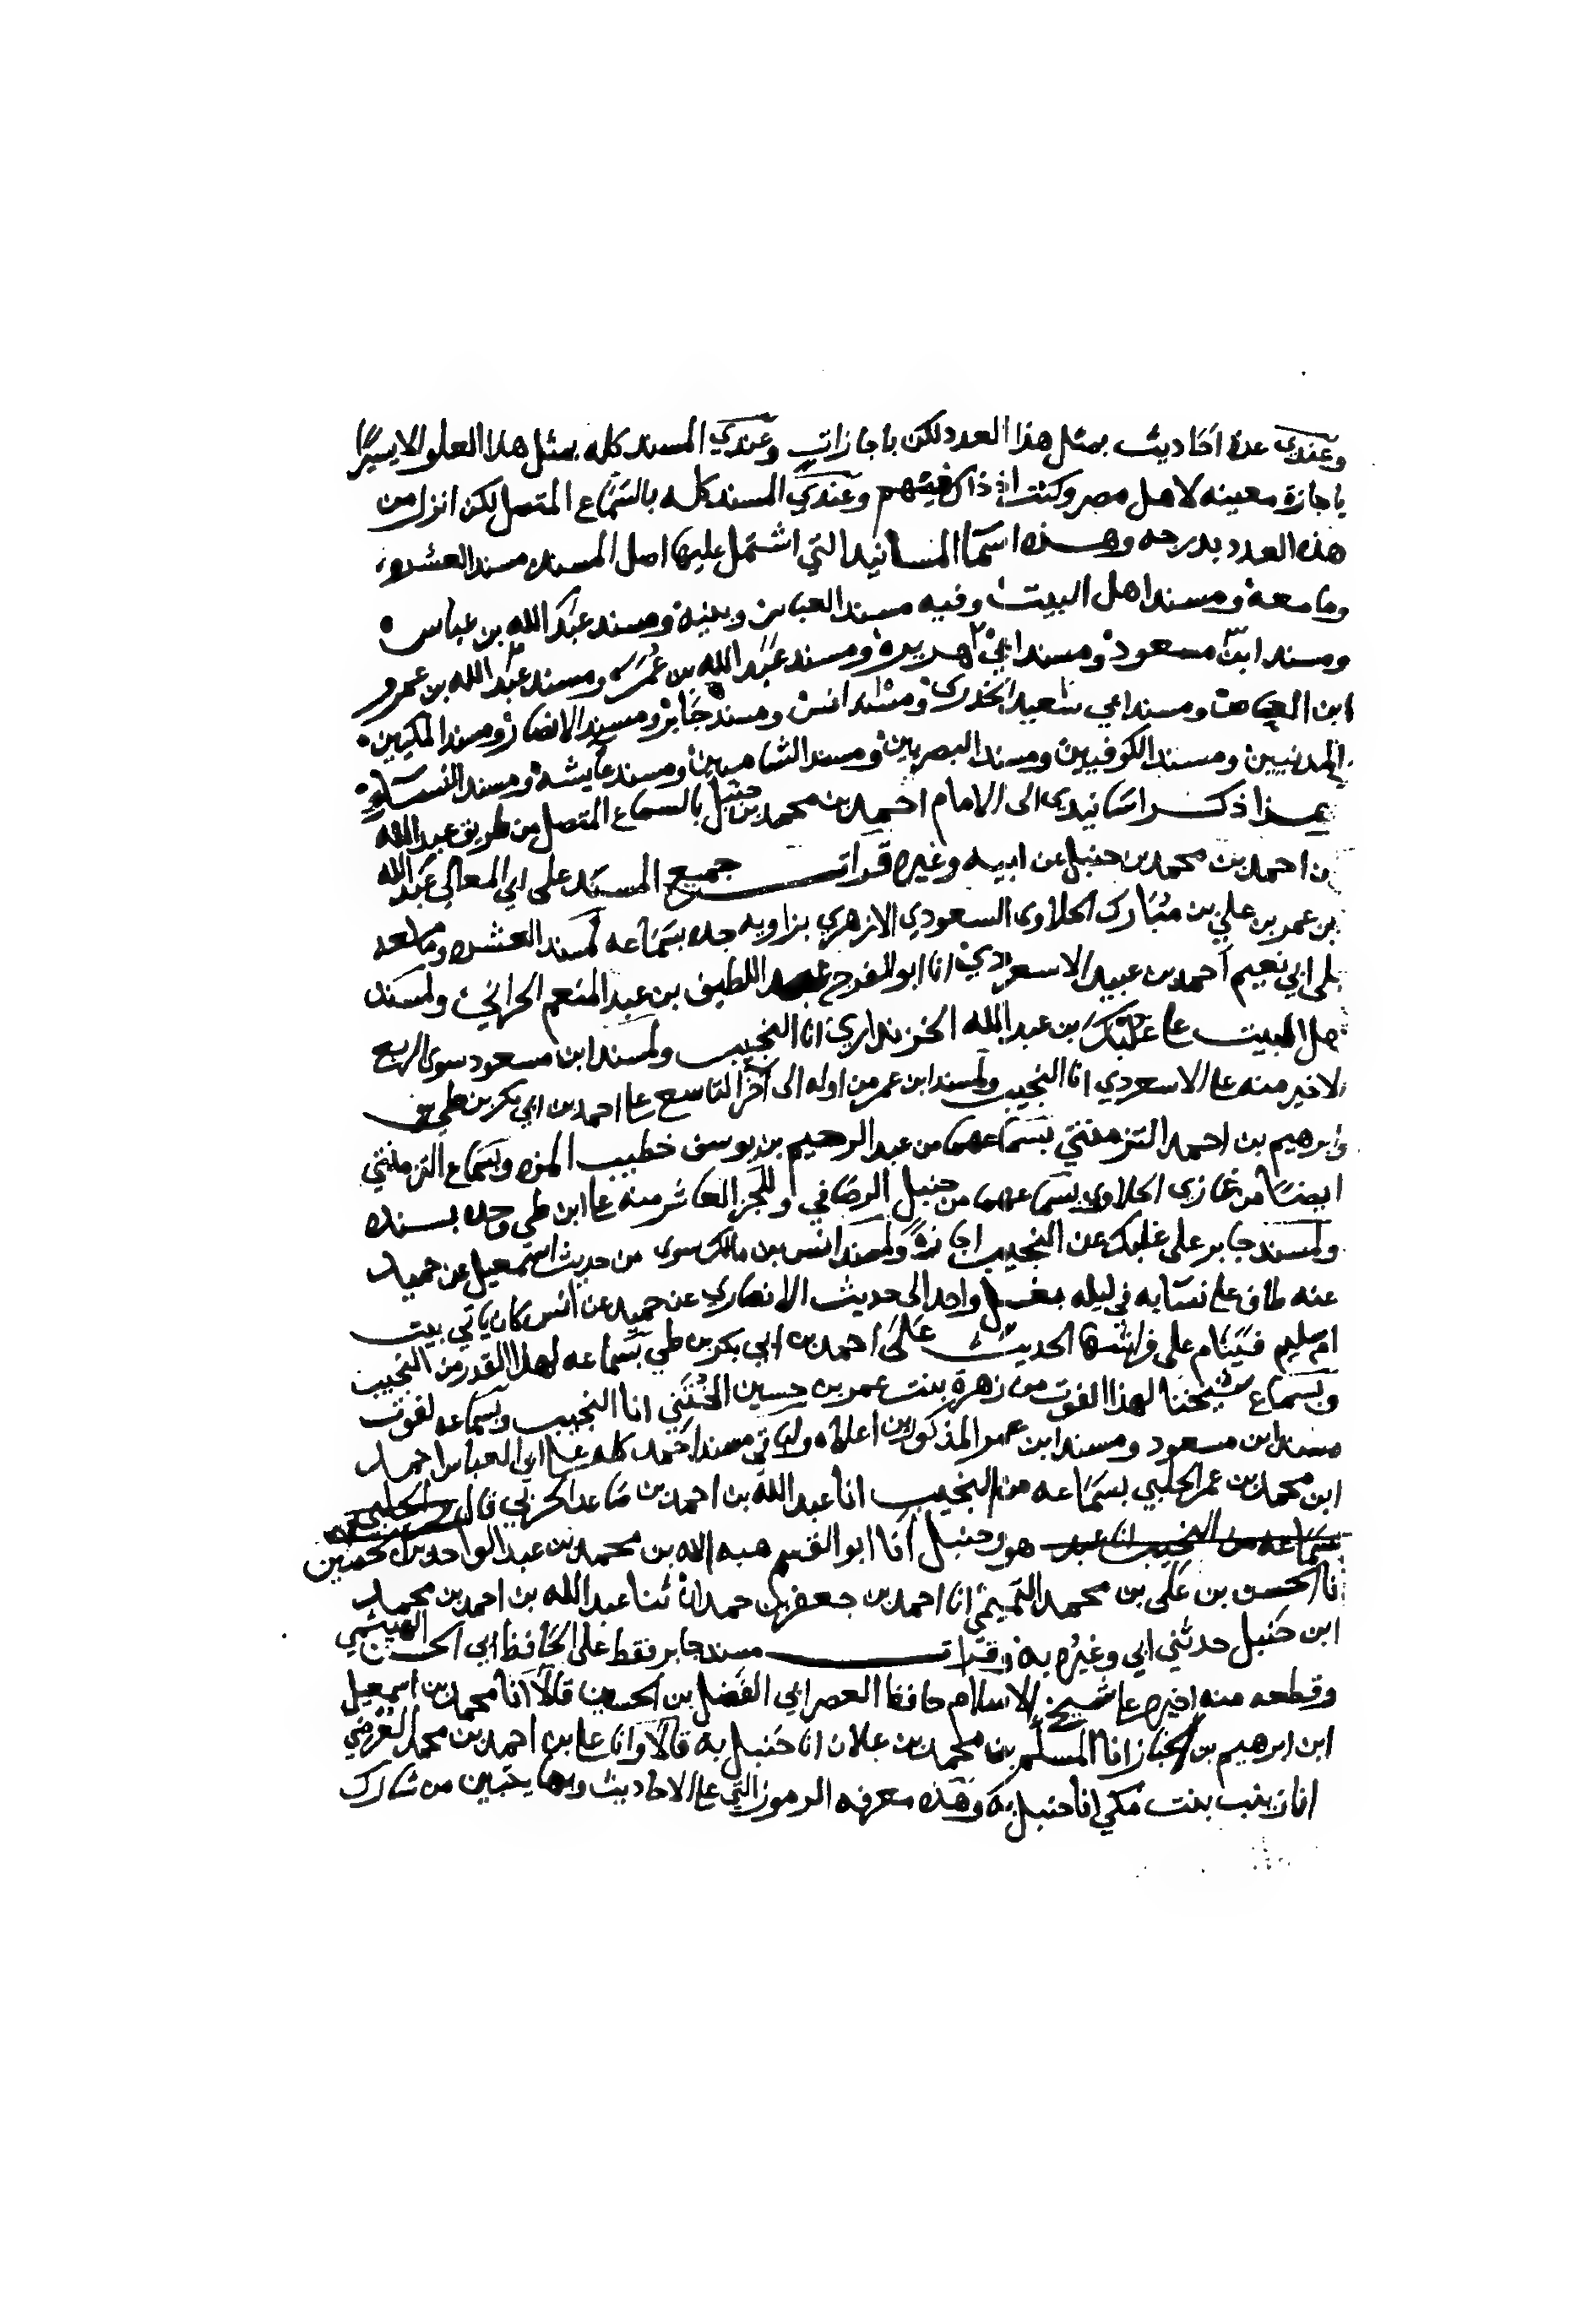 وعندي عدة احاديث بمثل هذا العدد لكن باجازات وعندي المسند كله بمثل هذا العلو الا يسيرًا
باجازة معينه لاهل مصر وكنت اذ ذاك فيهم وعندي المسند كله بالسماع المتصل لكن انزل من
هذه العدد بدرجه وهذه اسما المسانيد التي اشتمل عليها اصل المسند مسند العشره
وما معه ومسند اهل البيت وفيه مسند العباس وبنيه ومسند عبد الله بن عباس
ومسند ابن مسعود ومسند ابي هريره ومسند عبد الله بن عمر ومسند عبد الله بن عمرو
ابن العاص ومسند ابي سعيد الخدري ومسند انس ومسند جابر ومسند الانصار ومسند المكيين
والمدنيين ومسند الكوفيين ومسند البصريين ومسند الشاميين ومسند عايشه ومسند النسا
وهذا ذكر اسانيدي الى الامام احمد بن محمد بن حنبل بالسماع المتصل من طريق عبد الله
بن احمد بن محمد بن حنبل عن ابيه وغيره قرات جميع المسند على ابي المعالي عبد الله
بن عمر بن علي بن مبارك الحلاوي السعودي الازهري بزاويه جده بسماعه لمسند العشره وما معه
على ابي نعيم احمد بن عبيد الاسعردي انا ابو الفرج عبد اللطيف بن عبد المنعم الحراني ولمسند
اهل البيت على غلبك بن عبد الله الخزنداري انا النجيب ولمسند ابن مسعود سوى الربع
الاخير منه على الاسعردي انا النجيب ولمسند ابن عمر من اوله الى آخر التاسع على احمد بن ابي بكر بن طي
وابرهيم بن احمد التزمنتي بسماعهما من عبد الرحيم بن يوسف خطيب المزه وبسماع التزمنتي
ايضا من غازي الحلاوي بسماعهما من حنبل الرصافي وللجز العاشر منه على ابن طي وحده بسنده
ولمسند جابر على غلبك عن النجيب اجازةً ولمسند انس بن مالك سوى من حديث اسمعيل عن حميد
عنه طاف على نسايه في ليله بغسل واحد الى حديث الانصاري عن حميد عن انس كان ياتي بيت
ام سليم فينام على فراشها الحديث على احمد بن ابي بكر بن طي بسماعه لهذا القدر من النجيب
وبسماع شيخنا لهذا الفوت من زهرة بنت عمر بن حسين الختني انا النجيب وبسماعه لفوت
مسند ابن مسعود ومسند ابن عمر المذكورين اعلاه ولباقي مسند احمد كله على ابي العباس احمد
ابن محمد بن عمر الحلبي بسماعه من النجيب انا عبد الله بن احمد بن صاعد الحربي قال الحلبي
بسماعه من النجيب انا عبد هو وحنبل انا ابو القسم هبه الله بن محمد بن عبد الواحد بن الحصين
انا الحسن بن علي بن محمد التميمي انا احمد بن جعفر بن حمدان ثنا عبد الله بن احمد بن محمد
ابن حنبل حدثني ابي وغيره به وقرات مسند جابر فقط على الحافظ ابي الحسن الهيثمي
وقطعه منه اخيره على شيخ الاسلام حافظ العصر ابي الفضل بن الحسين قالا انا محمد بن اسمعيل
ابن ابرهيم بن الخباز انا المسلم بن محمد بن علان انا حنبل به قالا وانا علي بن احمد بن محمد العرضي
انا زينب بنت مكي انا حنبل به وهذه معرفه الرموز التي على الاحاديث وبها يتبين من شارك